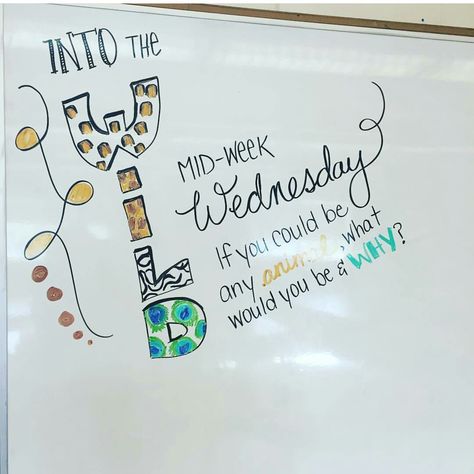 INTO THE
WILD
MID-WEEK
Wednesday
If you could be
any animal, what
would you be & WHY?